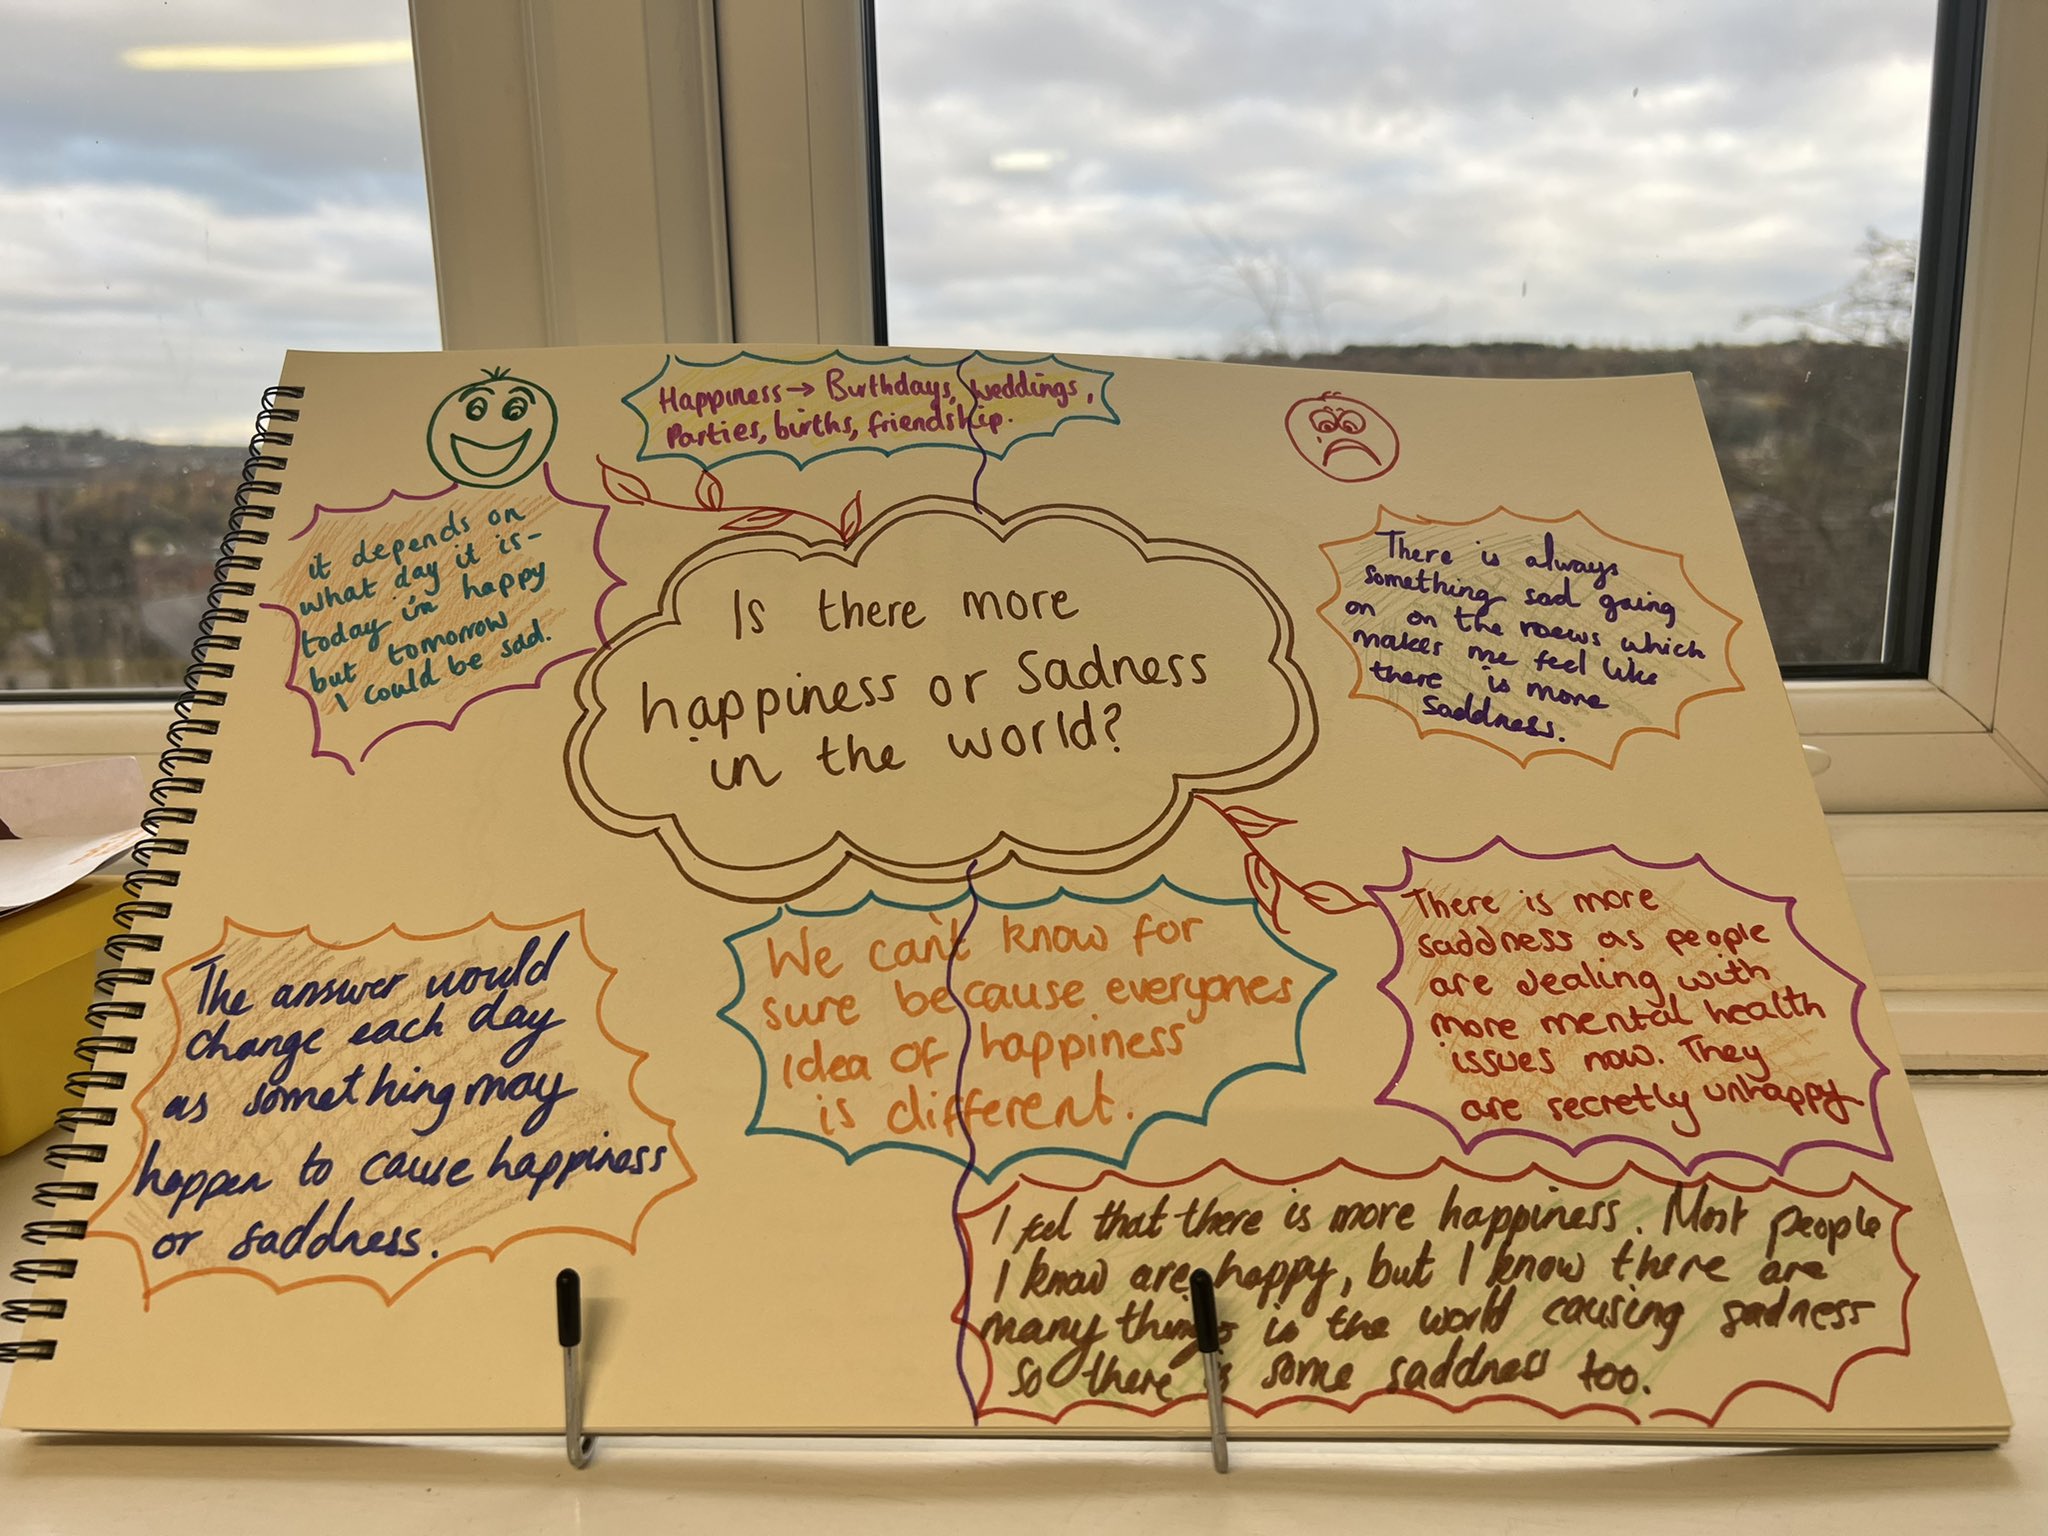 Happiness → Birthdays, weddings,
Parties, births, friendship.
it depends on
what day it is-
today im happy
but tomorrow
I could be sad.
Is there more
happiness or Sadness
in the world?
There is always
something sad going
on on the naews which
makes me feel like
there is more
Saddness.
The answer would
change each day
as something may
happen to cause happiness
or saddness.
We can't know for
sure because everyones
idea of happiness
is different.
There is more
saddness as people
are dealing with
more mental health
issues now. They
are secretly unhappy.
I feel that there is more happiness. Most people
I know are happy, but I know there are
many things in the world causing sadness
so there is some saddness too.